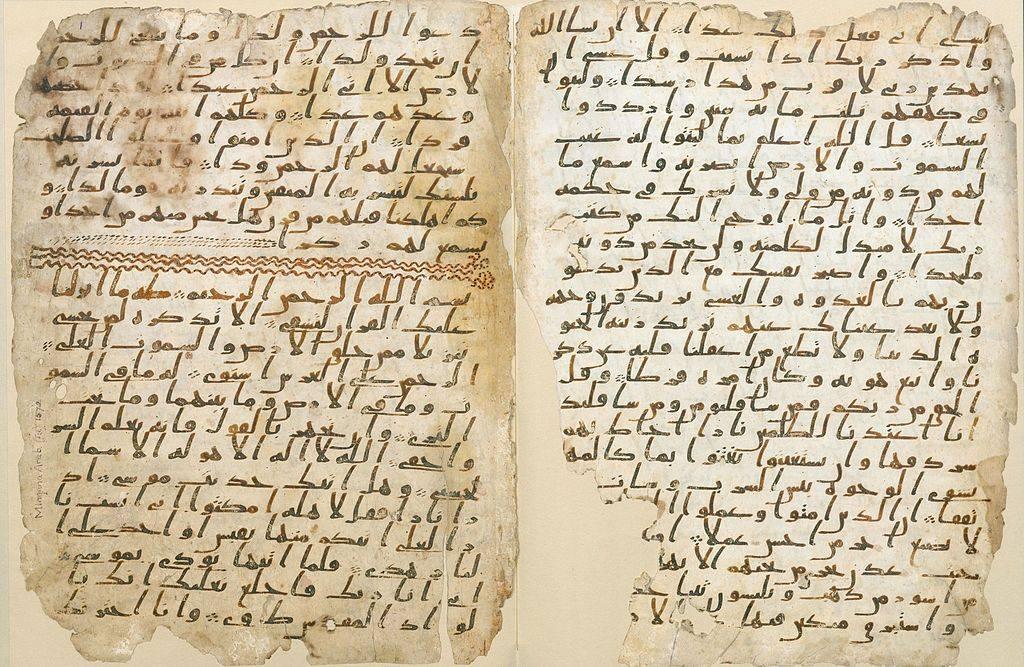 لشاي اني فعل ذلك غدا الا ان يشا الله
واذكر ربك اذا نسيت وقل عسى ان
يهدين ربي لاقرب من هذا رشدا ولبثوا
في كهفهم ثلث مائة سنين وازددوا
تسعا قل الله اعلم بما لبثوا له غيب
السموت والارض ابصر به واسمع ما
لهم من دونه من ولي ولا يشرك في حكمه
احدا واتل ما اوحي اليك من كتب
ربك لا مبدل لكلمته ولن تجد من دونه
ملتحدا واصبر نفسك مع الذين يدعو
ن ربهم بالغدوه والعشي يريدون وجهه
ولا تعد عيناك عنهم تريد زينة الحيو
ه الدنيا ولا تطع من اغفلنا قلبه عن ذكر
نا واتبع هويه وكان امره فرطا وقل
الحق من ربكم فمن شا فليومن ومن شا فليكـ
انا اعتدنا للظلمين نارا احاط بهم
سردقها وان يستغيثوا يغثوا بما كالمه
يشوي الوجوه بئس الشرب وسات
تفقا ان الذين امنوا وعملوا ا
لا نضيع اجر من احسن عملا او
جنت عدن تجري من تحتهم الانها
من اسور من ذهب ويلبسون ثيابا خـ
واستبرق متكين فيها الا
دعوا للرحمن ولدا وما ينبغي للرحمن
ان يتخذ ولدا ان كل من في السموت وا
لارض الا اتي الرحمن عبدا لقد احصيهم
وعدهم عدا وكلهم اتيه يوم القيمه
فردا ان الذين امنوا وعملوا الصلحت
سيجعل لهم الرحمن ودا فانما يسرنه
بلسنك لتبشر به المتقين وتنذر به قوما لدا و
كم اهلكنا قبلهم من قرن هل تحس منهم من احد او
تسمع لهم ركزا
بسم الله الرحمن الرحيم طه ما انزلنا
عليك القران لتشقى الا تذكره لمن يخشى
تنزيلا ممن خلق الارض والسموت العلى
الرحمن على العرش استوى له ما في السمو
ت وما في الارض وما بينهما وما تحت
الثرى وان تجهر بالقول فانه يعلم السر
واخفى الله لا اله الا هو له الاسما ا
لحسنى وهل اتيك حديث موسى اذ
را نارا فقل لاهله امكثوا اني انست نا
را لعلي اتيكم منها بقبس او اجد على ا
لنار هدى فلما اتيها نودي يموسى
اني انا ربك فاخلع نعليك انك با
لواد المقدس طوى وانا اخترتك
Mingana Arab. Isl. 1572